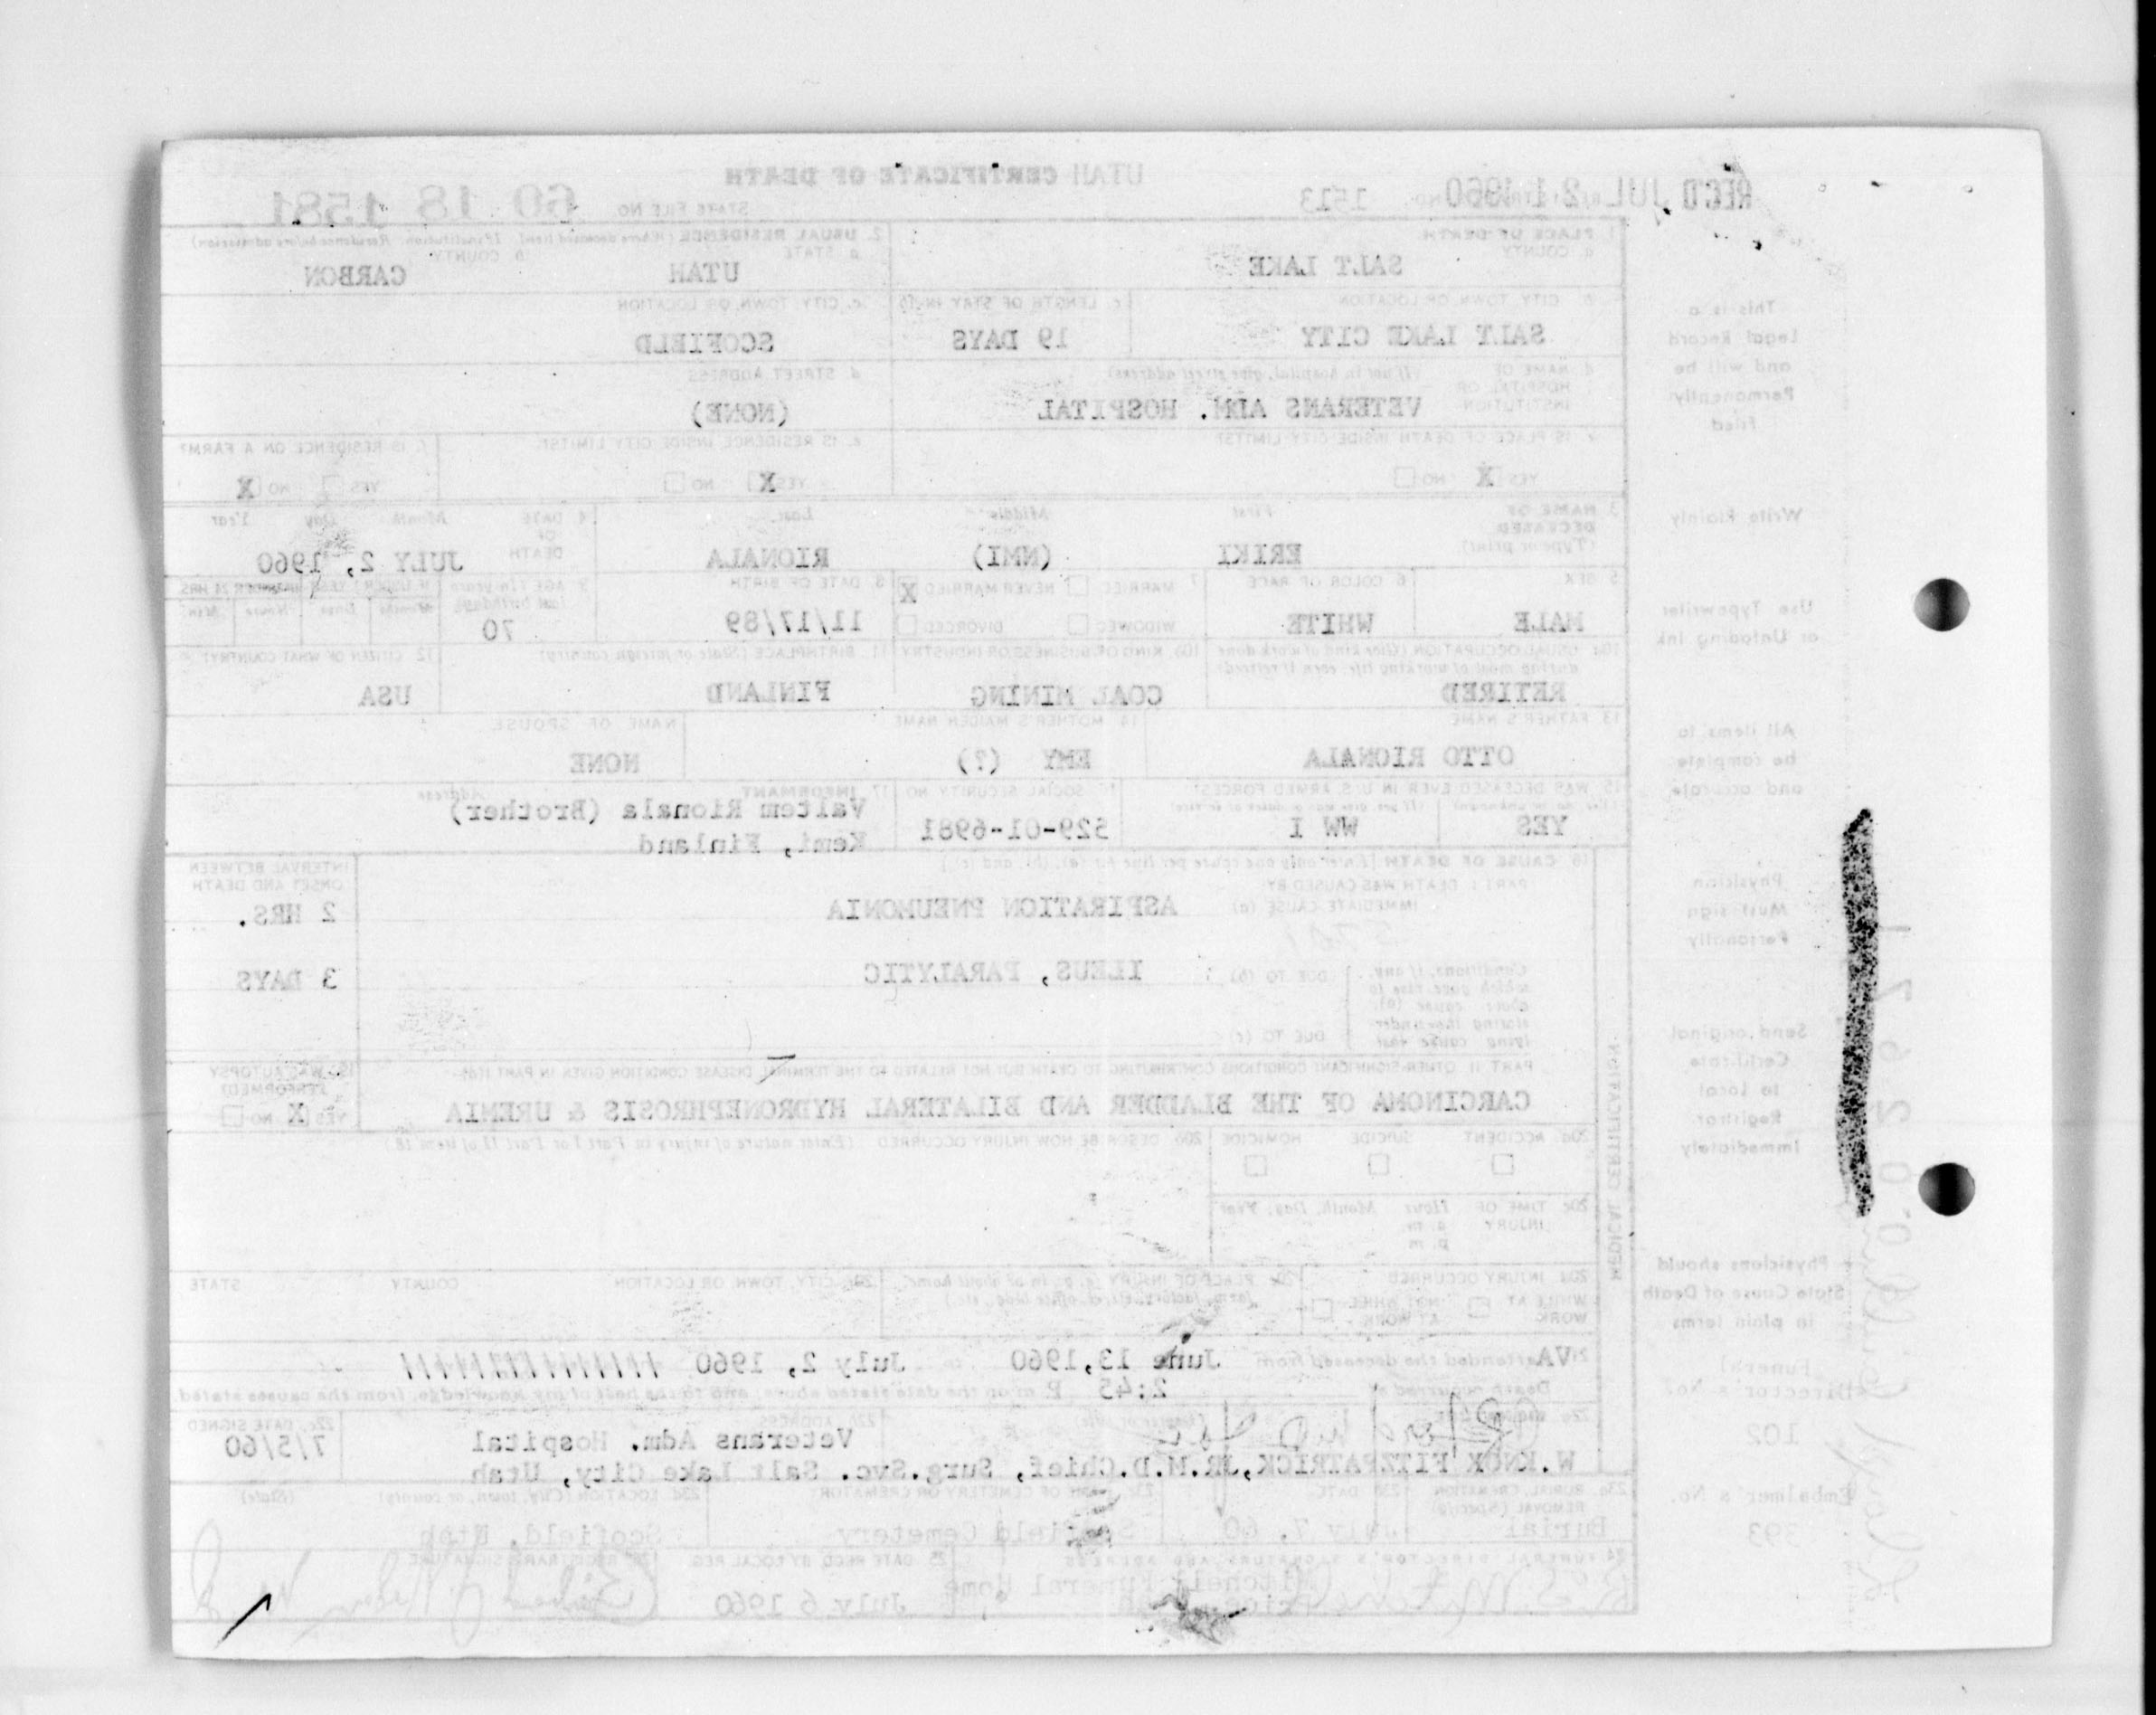 UTAH CERTIFICATE OF DEATH
REC'D JUL 21 1960
1513
STATE FILE NO. 60 18 1581
1. PLACE OF DEATH
a. COUNTY
SALT LAKE
2. USUAL RESIDENCE (Where deceased lived. If institution: Residence before admission)
a. STATE
UTAH
b. COUNTY
CARBON
b. CITY, TOWN, OR LOCATION
SALT LAKE CITY
c. LENGTH OF STAY IN 1b
19 DAYS
c. CITY, TOWN, OR LOCATION
SCOFIELD
d. NAME OF HOSPITAL OR INSTITUTION (If not in hospital, give street address)
VETERANS ADM. HOSPITAL
d. STREET ADDRESS
(NONE)
e. IS PLACE OF DEATH INSIDE CITY LIMITS?
YES X NO
e. IS RESIDENCE INSIDE CITY LIMITS?
YES X NO
f. IS RESIDENCE ON A FARM?
YES NO X
3. NAME OF DECEASED (Type or print)
First Middle Last
ERIKI (NMI) RIONALA
4. DATE OF DEATH Month Day Year
JULY 2, 1960
5. SEX
MALE
6. COLOR OR RACE
WHITE
7. MARRIED NEVER MARRIED X
WIDOWED DIVORCED
8. DATE OF BIRTH
11/17/89
9. AGE (In years last birthday)
70
IF UNDER 1 YEAR IF UNDER 24 HRS.
Months Days Hours Min.
10a. USUAL OCCUPATION (Give kind of work done during most of working life, even if retired)
RETIRED
10b. KIND OF BUSINESS OR INDUSTRY
COAL MINING
11. BIRTHPLACE (State or foreign country)
FINLAND
12. CITIZEN OF WHAT COUNTRY?
USA
13. FATHER'S NAME
OTTO RIONALA
14. MOTHER'S MAIDEN NAME
EMY (?)
NAME OF SPOUSE
NONE
15. WAS DECEASED EVER IN U.S. ARMED FORCES?
(Yes, no, or unknown) (If yes, give war or dates of service)
YES WW I
16. SOCIAL SECURITY NO.
529-01-6981
17. INFORMANT Address
Valtem Rionala (Brother)
Kemi, Finland
18. CAUSE OF DEATH [Enter only one cause per line for (a), (b), and (c).]
PART I. DEATH WAS CAUSED BY:
IMMEDIATE CAUSE (a)
ASPIRATION PNEUMONIA
INTERVAL BETWEEN ONSET AND DEATH
2 HRS.
Conditions, if any, which gave rise to above cause (a), stating the underlying cause last
DUE TO (b)
ILEUS, PARALYTIC
3 DAYS
DUE TO (c)
PART II. OTHER SIGNIFICANT CONDITIONS CONTRIBUTING TO DEATH BUT NOT RELATED TO THE TERMINAL DISEASE CONDITION GIVEN IN PART I(a)
CARCINOMA OF THE BLADDER AND BILATERAL HYDRONEPHROSIS & UREMIA
19. WAS AUTOPSY PERFORMED?
YES X NO
20a. ACCIDENT SUICIDE HOMICIDE
20b. DESCRIBE HOW INJURY OCCURRED. (Enter nature of injury in Part I or Part II of item 18.)
20c. TIME OF INJURY Hour Month, Day, Year
a. m.
p. m.
20d. INJURY OCCURRED
WHILE AT WORK NOT WHILE AT WORK
20e. PLACE OF INJURY (e. g., in or about home, farm, factory, street, office bldg., etc.)
20f. CITY, TOWN, OR LOCATION COUNTY STATE
MEDICAL CERTIFICATION
21. VA attended the deceased from June 13, 1960 to July 2, 1960
Death occurred at 2:45 P m on the date stated above, and to the best of my knowledge, from the causes stated.
22a. SIGNATURE (Degree or title)
W. KNOX FITZPATRICK, JR. M.D. Chief, Surg. Svc.
22b. ADDRESS
Veterans Adm. Hospital
Salt Lake City, Utah
22c. DATE SIGNED
7/5/60
23a. BURIAL, CREMATION, REMOVAL (Specify)
Burial
23b. DATE
July 7, 60
23c. NAME OF CEMETERY OR CREMATORY
Scofield Cemetery
23d. LOCATION (City, town, or county) (State)
Scofield, Utah
24. FUNERAL DIRECTOR'S SIGNATURE AND ADDRESS
Mitchell Funeral Home
25. DATE RECD BY LOCAL REG.
July 6 1960
26. REGISTRAR'S SIGNATURE
This is a
Legal Record
and will be
Permanently
filed
Write Plainly
Use Typewriter
or Unfading Ink
All items to
be complete
and accurate
Physician
Must sign
Personally
Send original
Certificate
to Local
Registrar
Immediately
Physicians should
State Cause of Death
in plain terms
Funeral
Director's No.
102
Embalmer's No.
393